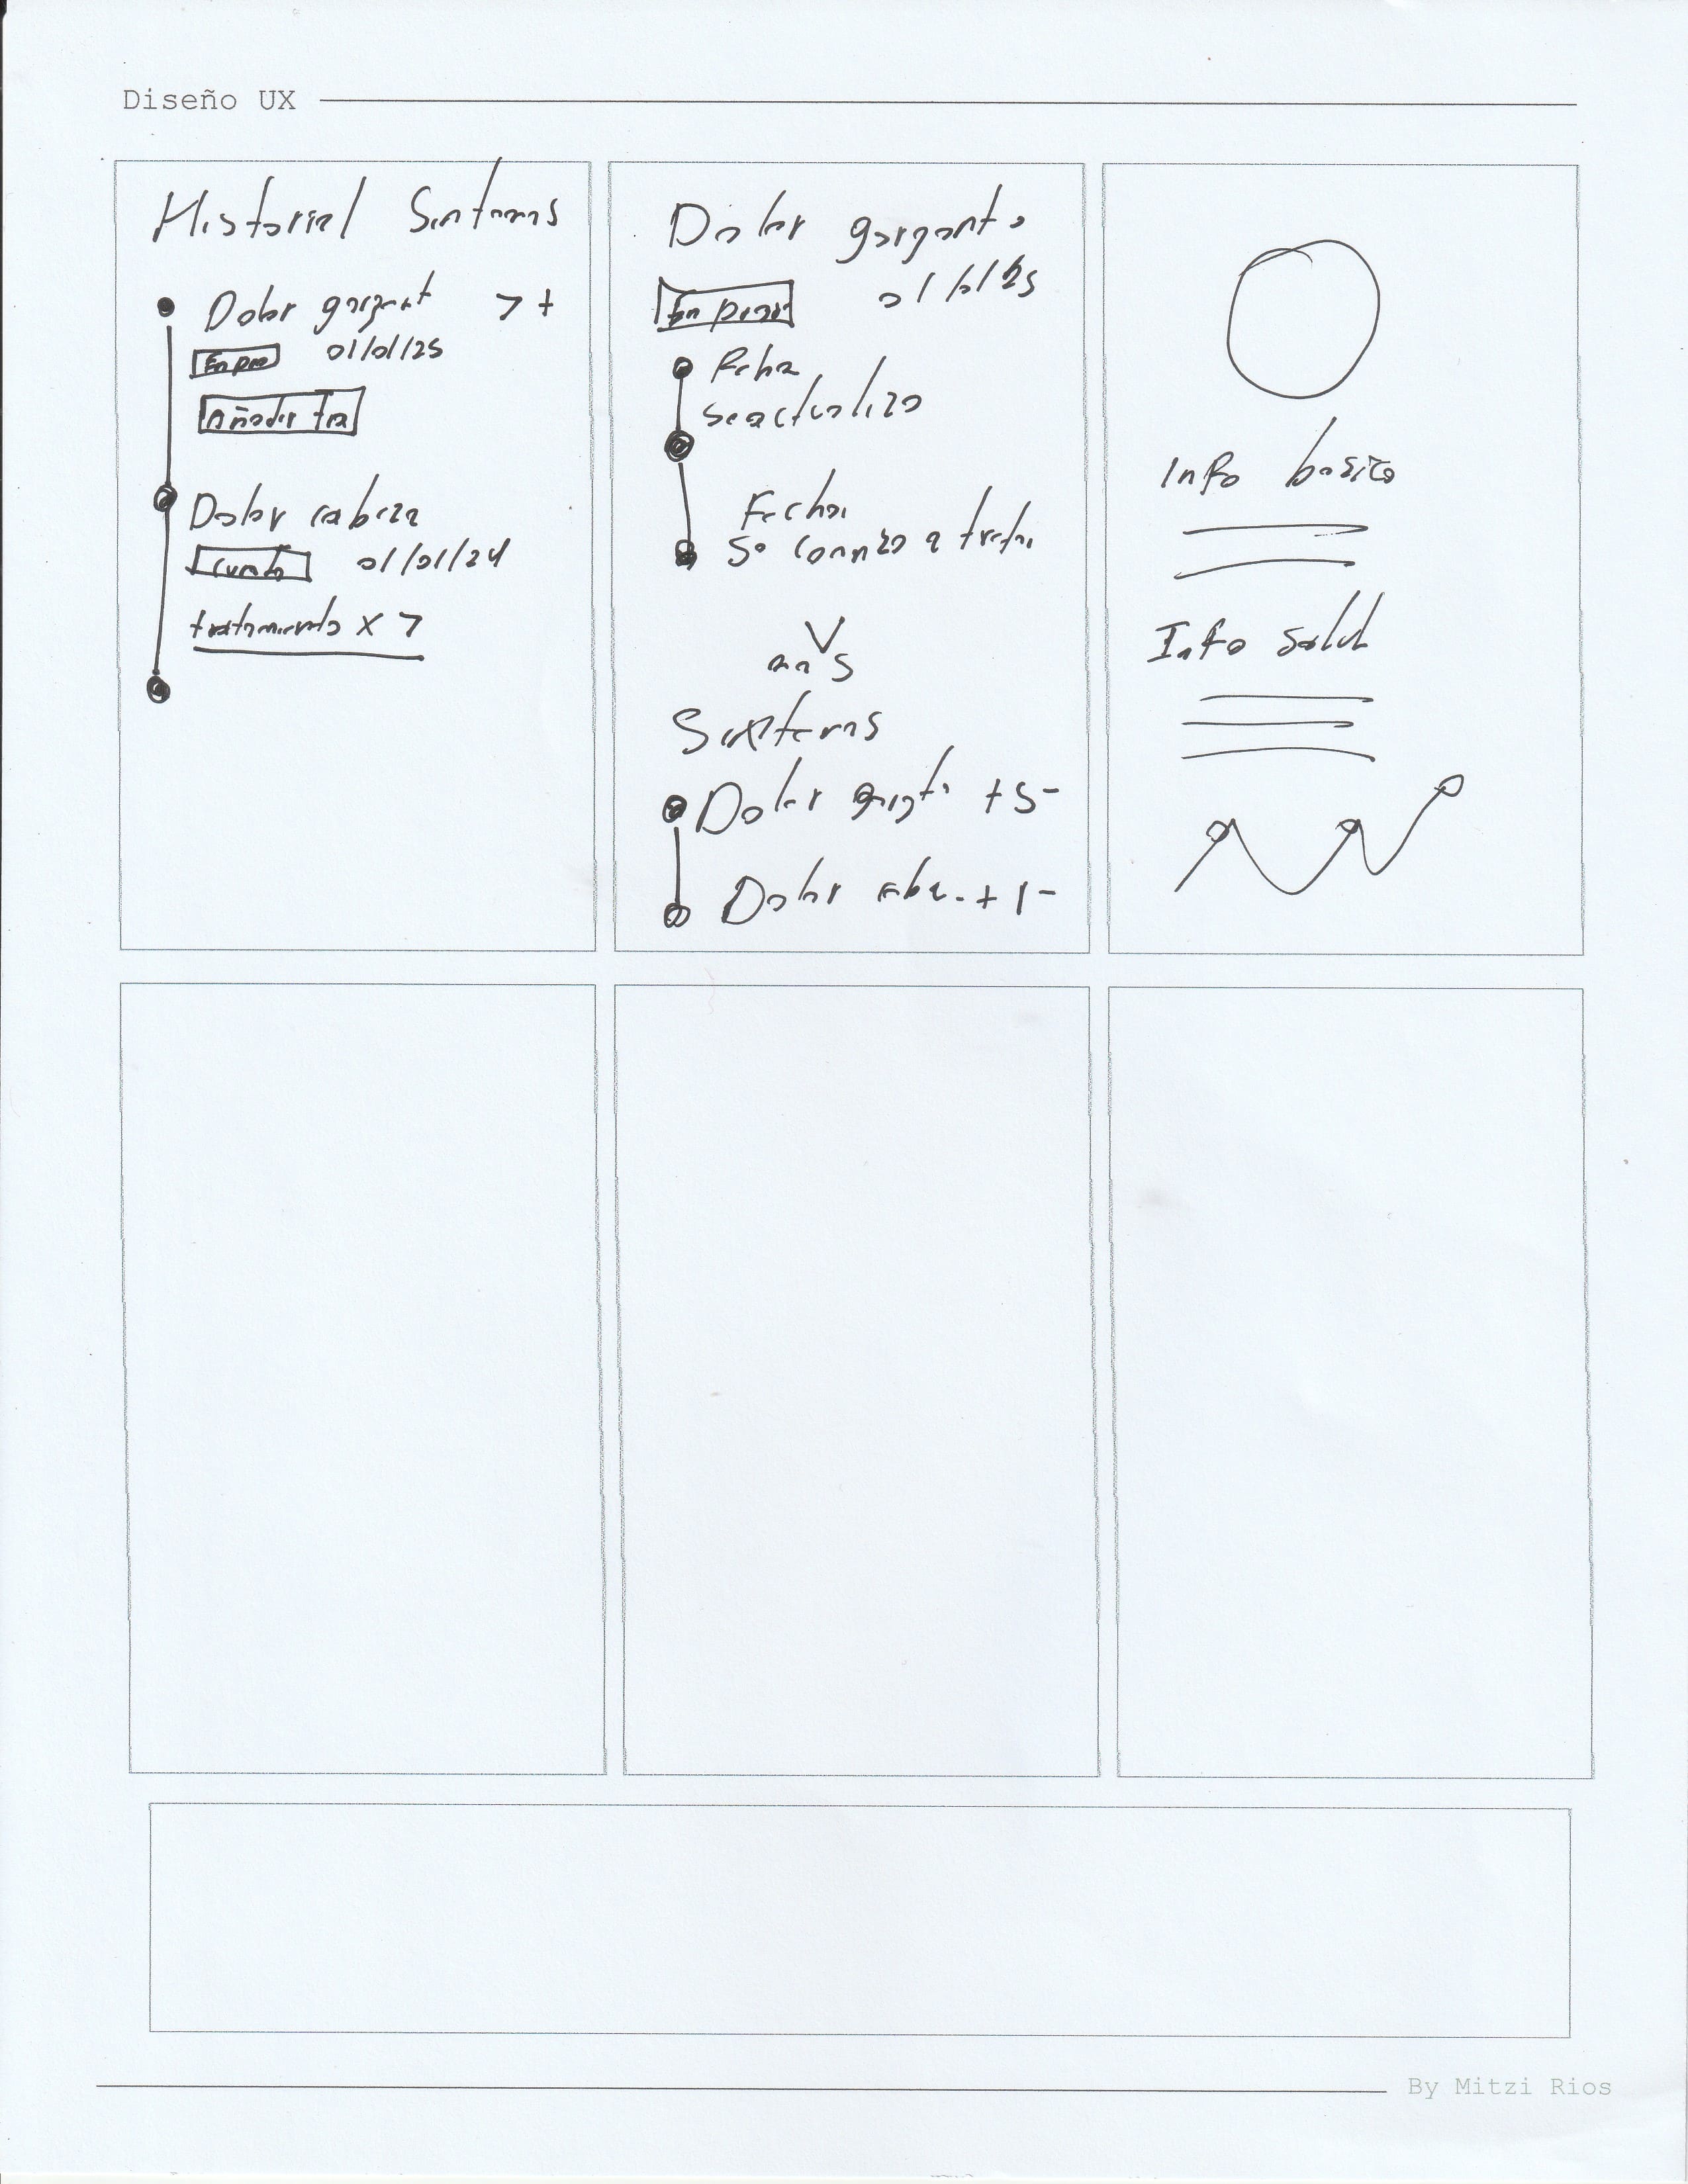 Diseño UX
Historial Sintomas
Dolor gargant > +
En pro 01/01/25
Añadir tra
Dolor cabeza
Curado 01/01/24
tratamiento x >
Dolor garganta
En proce 01/01/25
Fecha
Se actualizo
Fecha
Se comenzo a trata.
Sintomas
Dolor + 5 -
Dolor + 1 -
Info basica
Info salud
By Mitzi Rios